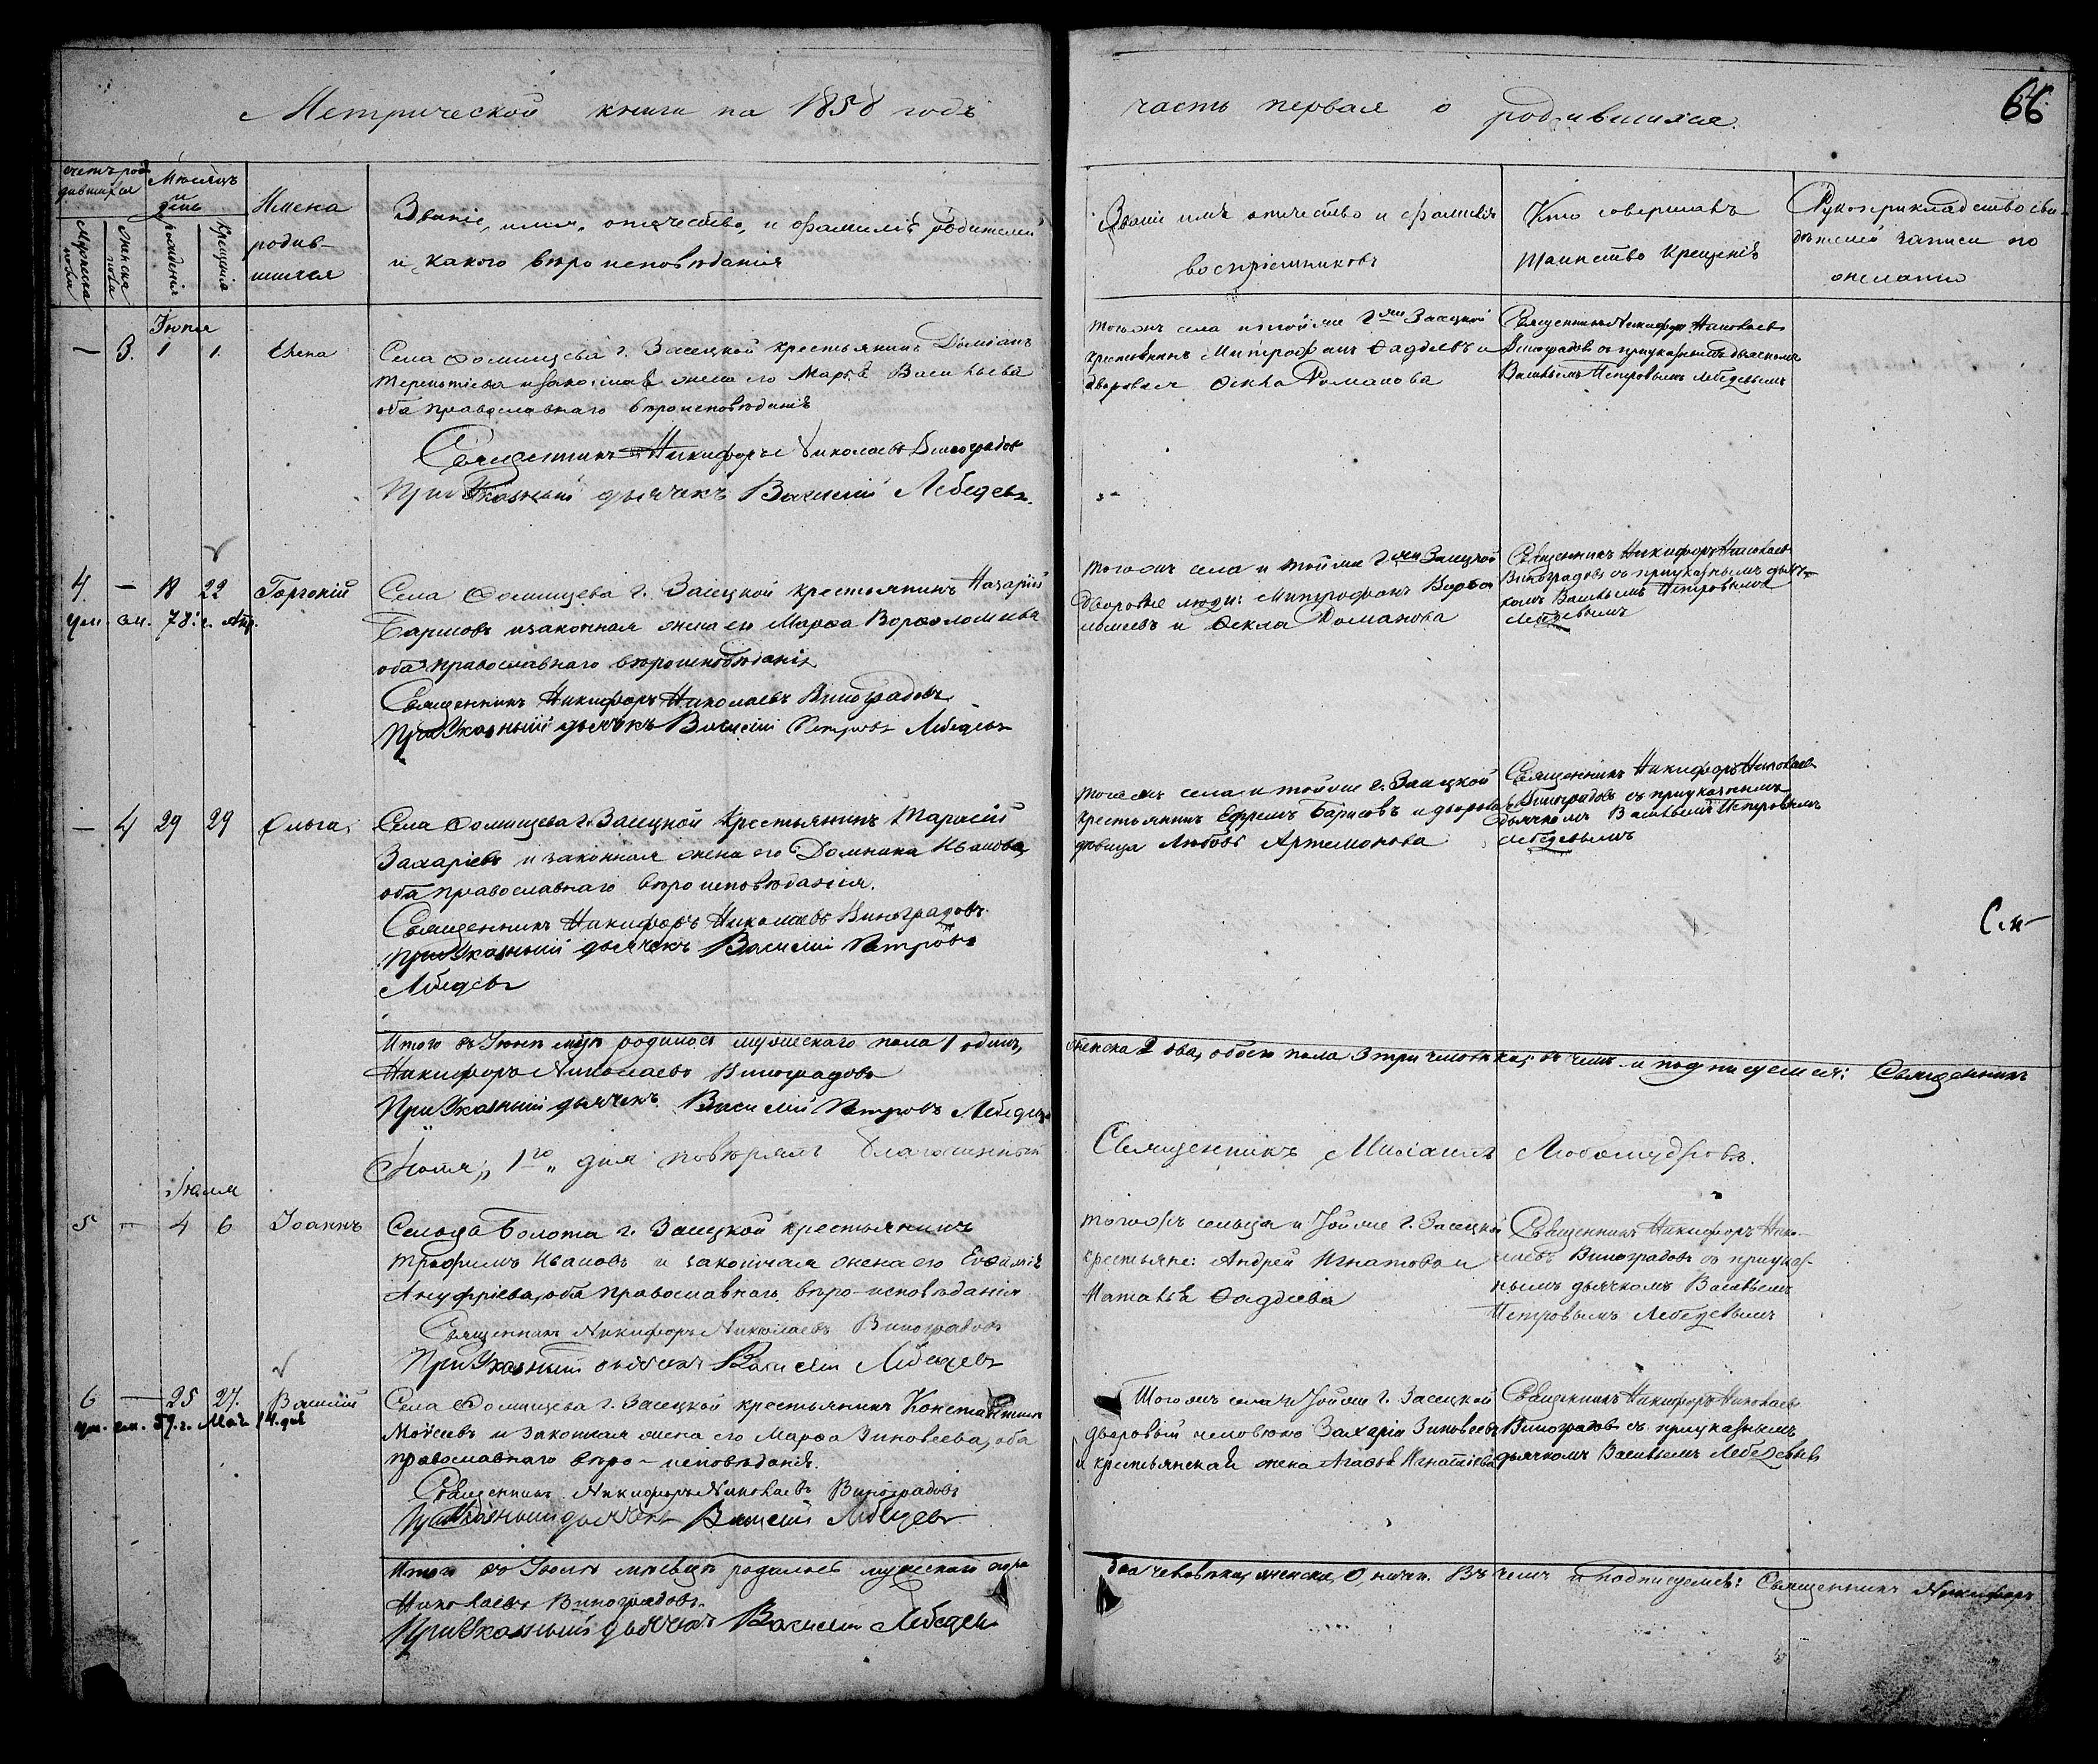 Метрической книги на 1858 годъ
часть первая о родившихся.
66
счетъ родившихся
Мѣсяцъ и день
Имена родившихся
Званіе, имя, отечество, и фамиліѣ родителей
и какого вѣроисповѣданія
Мужеска пола
Женска пола
рожденія
Крещенія
Званіе имѣ отечество и фамилія
воспріемниковъ
Кто совершалъ
таинство Крещеніѣ
Рукоприкладство сви-
дѣтелей записи по
желанію
Іюня
— 3. 1 1. Елена
Села Фомищева г. Засецкой крестьянинъ Доміанъ
Терентіевъ и законная жена его Марѣя Васильева
оба православнаго вѣроисповѣданіѣ
Священникъ Никифоръ Николаевъ Виноградовъ
ПриУказный дьячекъ Василій Лебедевъ.
тогожъ села и тойже Гжи Засецкой
крестьянинъ Митрофанъ Фадѣевъ и
дворовая Фекла Романова
Священникъ Никифоръ Николаевъ
Виноградовъ съ приуказнымъ дьячкомъ
Васильемъ Петровымъ Лебедевымъ
4. — 18 22 Горгоній
ум. см. 73. г. Апр.
Села Фомищева г. Засецкой крестьянинъ Назарій
Барисовъ изаконная жена ея Марѳа Ворфоломѣева
оба православнаго вѣроисповѣданія
Священникъ Никифоръ Николаевъ Виноградовъ
ПриУказный дьячекъ Василій Петровъ Лебедевъ
тогожъ села и тойже Гжи Засецкой
дворовые люди: Митрофанъ Варѳо-
ломѣевъ и Фекла Романова
Священникъ Никифоръ Николаевъ
Виноградовъ съ приуказнымъ дьяч-
комъ Васильемъ Петровымъ
Лебедевымъ
— 4 29 29 Ольга
Села Фомищева г. Засецкой Крестьянинъ Тарасій
Захаріевъ и законная жена его Домника Иванова,
оба православнаго вѣроисповѣданія.
Священникъ Никифоръ Николаевъ Виноградовъ
ПриУказный дьячекъ Василій Петровъ
Лебедевъ
тогожъ села и тойже г. Засецкой
крестьянинъ Ефремъ Барисовъ и дворовая
дѣвица Любовь Артемонова
Священникъ Никифоръ Николаевъ
Виноградовъ съ приуказнымъ
дьячкомъ Васильемъ Петровымъ
Лебедевымъ
Итого въ Іюнѣ мцѣ родилось мужескаго пола 1 одинъ,
женска 2 два, обоего пола 3 три человѣка; въ чемъ и подписуемся: Священникъ
Никифоръ Николаевъ Виноградовъ
ПриУказный дьячекъ Василій Петровъ Лебедевъ
Іюля 1го дня повѣрялъ Благочинный
Священникъ Михаилъ Любомудровъ.
Іюля
5 — 4 6 Іоаннъ
Сельца Болота г. Засецкой крестьянинъ
Трофимъ Ивановъ и законная жена его Евфиміѣ
Ануфріева, оба православнаго вѣро-исповѣданія
Священникъ Никифоръ Николаевъ Виноградовъ
ПриУказный дьячекъ Василій Лебедевъ
тогожъ сельца и тойже г. Засецкой
крестьяне: Андрей Игнатовъ и
Наталія Фадѣева
Священникъ Никифоръ Нико-
лаевъ Виноградовъ съ приуказ-
нымъ дьячкомъ Васильемъ
Петровымъ Лебедевымъ
6 — 25 27. Василій
ум. см. 59. г. Мая 14. дня
Села Фомищева г. Засецкой крестьянинъ Константинъ
Моѵсеевъ и законная жена его Марѳа Зиновеева, оба
православнаго вѣро-исповѣданіѣ.
Священникъ Никифоръ Николаевъ Виноградовъ
ПриУказный дьячекъ Василій Лебедевъ
Тогожъ села и тойже г. Засецкой
дворовый человѣкъ Захарій Зиновеевъ
и крестьянская жена Агафья Игнатіева
Священникъ Никифоръ Николаевъ
Виноградовъ съ приуказнымъ
дьячкомъ Васильемъ Лебедевымъ
Итого въ Іюлѣ мѣсяцѣ родилось мужескаго пола
два человѣка, женска 0, Въ чемъ и подписуемся: Священникъ Никифоръ
Николаевъ Виноградовъ
ПриУказный дьячекъ Василій Лебедевъ